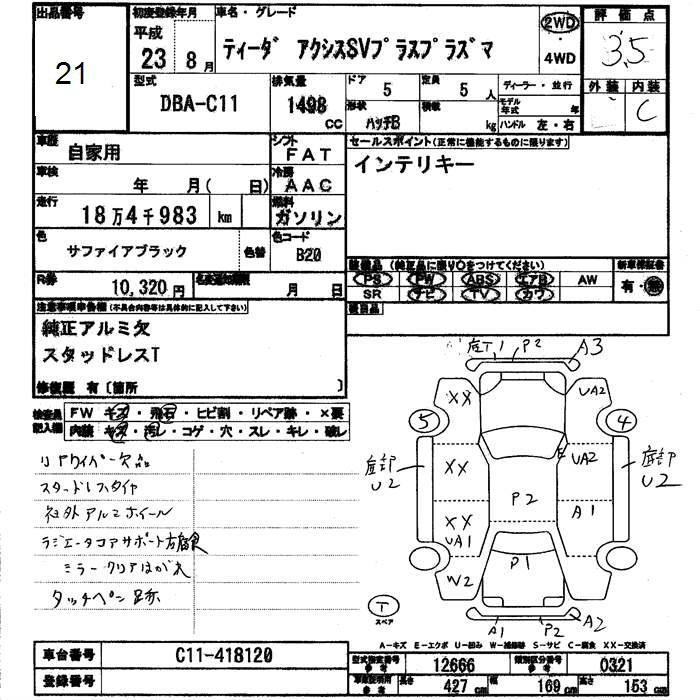 出品番号
21
初度登録年月
平成
23 8月
車名・グレード
ティーダ アクシスSVプラスプラズマ
2WD
4WD
評価点
3.5
外装 内装
C
型式
DBA-C11
排気量
1498
CC
ドア
5
定員
5人
形状
ハッチB
積載
kg
ディーラー・並行
モデル年式 年
ハンドル 左・右
車歴
自家用
シフト
FAT
車検
年 月( 日)
冷房
AAC
走行
18万4千983 km
燃料
ガソリン
色
サファイアブラック
色替
色コード
B20
R券
10,320円
名変通知期限
月 日
セールスポイント(正常に機能するものに限ります)
インテリキー
装備品 (純正品に限り○をつけてください)
PS PW ABS エアB AW
SR ナビ TV カワ
新車保証書
有・無
後日品
注意事項申告欄(不具合内容等は具体的に記入して下さい)
純正アルミ欠
スタッドレスT
修復歴 有〔箇所 〕
検査員記入欄
FW キズ・飛石・ヒビ割・リペア跡・×要
内装 キズ・汚レ・コゲ・穴・スレ・キレ・破レ
リアワイパー欠品
スタッドレスタイヤ
社外アルミホイール
ラジエータコアサポート方腐食
ミラークリアはがれ
タッチペン跡
底T1 P2 A3
XX UA2
5 4
底部U2 XX E UA2 底部U2
P2
XX UA1 A1
P1
W2
T
スペア
A1 P2 A2
A-キズ E-エクボ U-凹み W-補修跡 S-サビ C-腐食 XX-交換済
車台番号
C11-418120
登録番号
型式指定番号 参考
12666
類別区分番号 参考
0321
車庫証明用 参考
長さ 427cm 幅 169cm 高さ 153cm